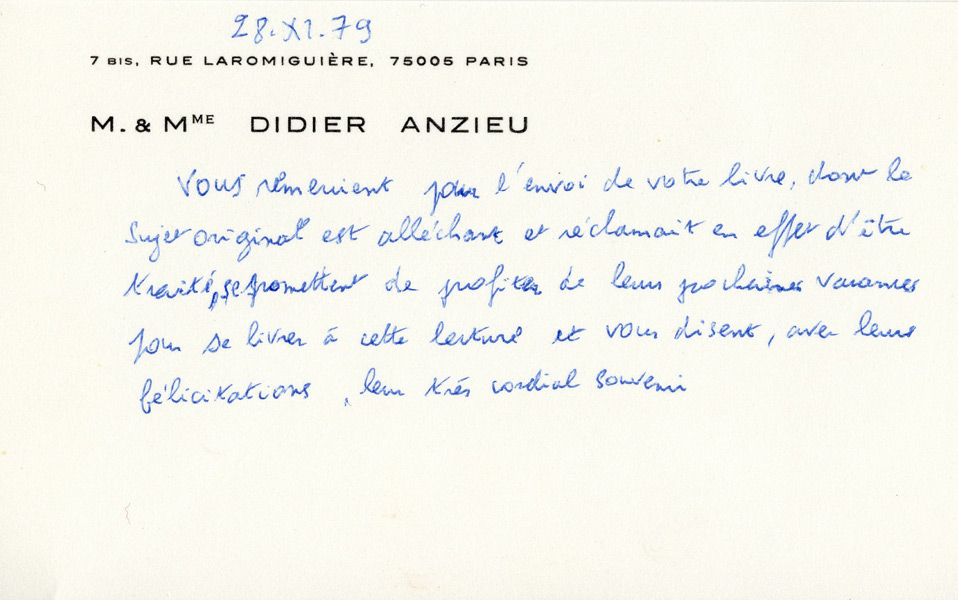 28.XI.79
7 BIS, RUE LAROMIGUIÈRE, 75005 PARIS
M. & MME DIDIER ANZIEU
Vous remercient pour l'envoi de votre livre, dont le
sujet original est alléchant et réclamait en effet d'être
traité, se promettent de profiter de leurs prochaines vacances
pour se livrer à cette lecture et vous disent, avec leurs
félicitations, leur très cordial souvenir